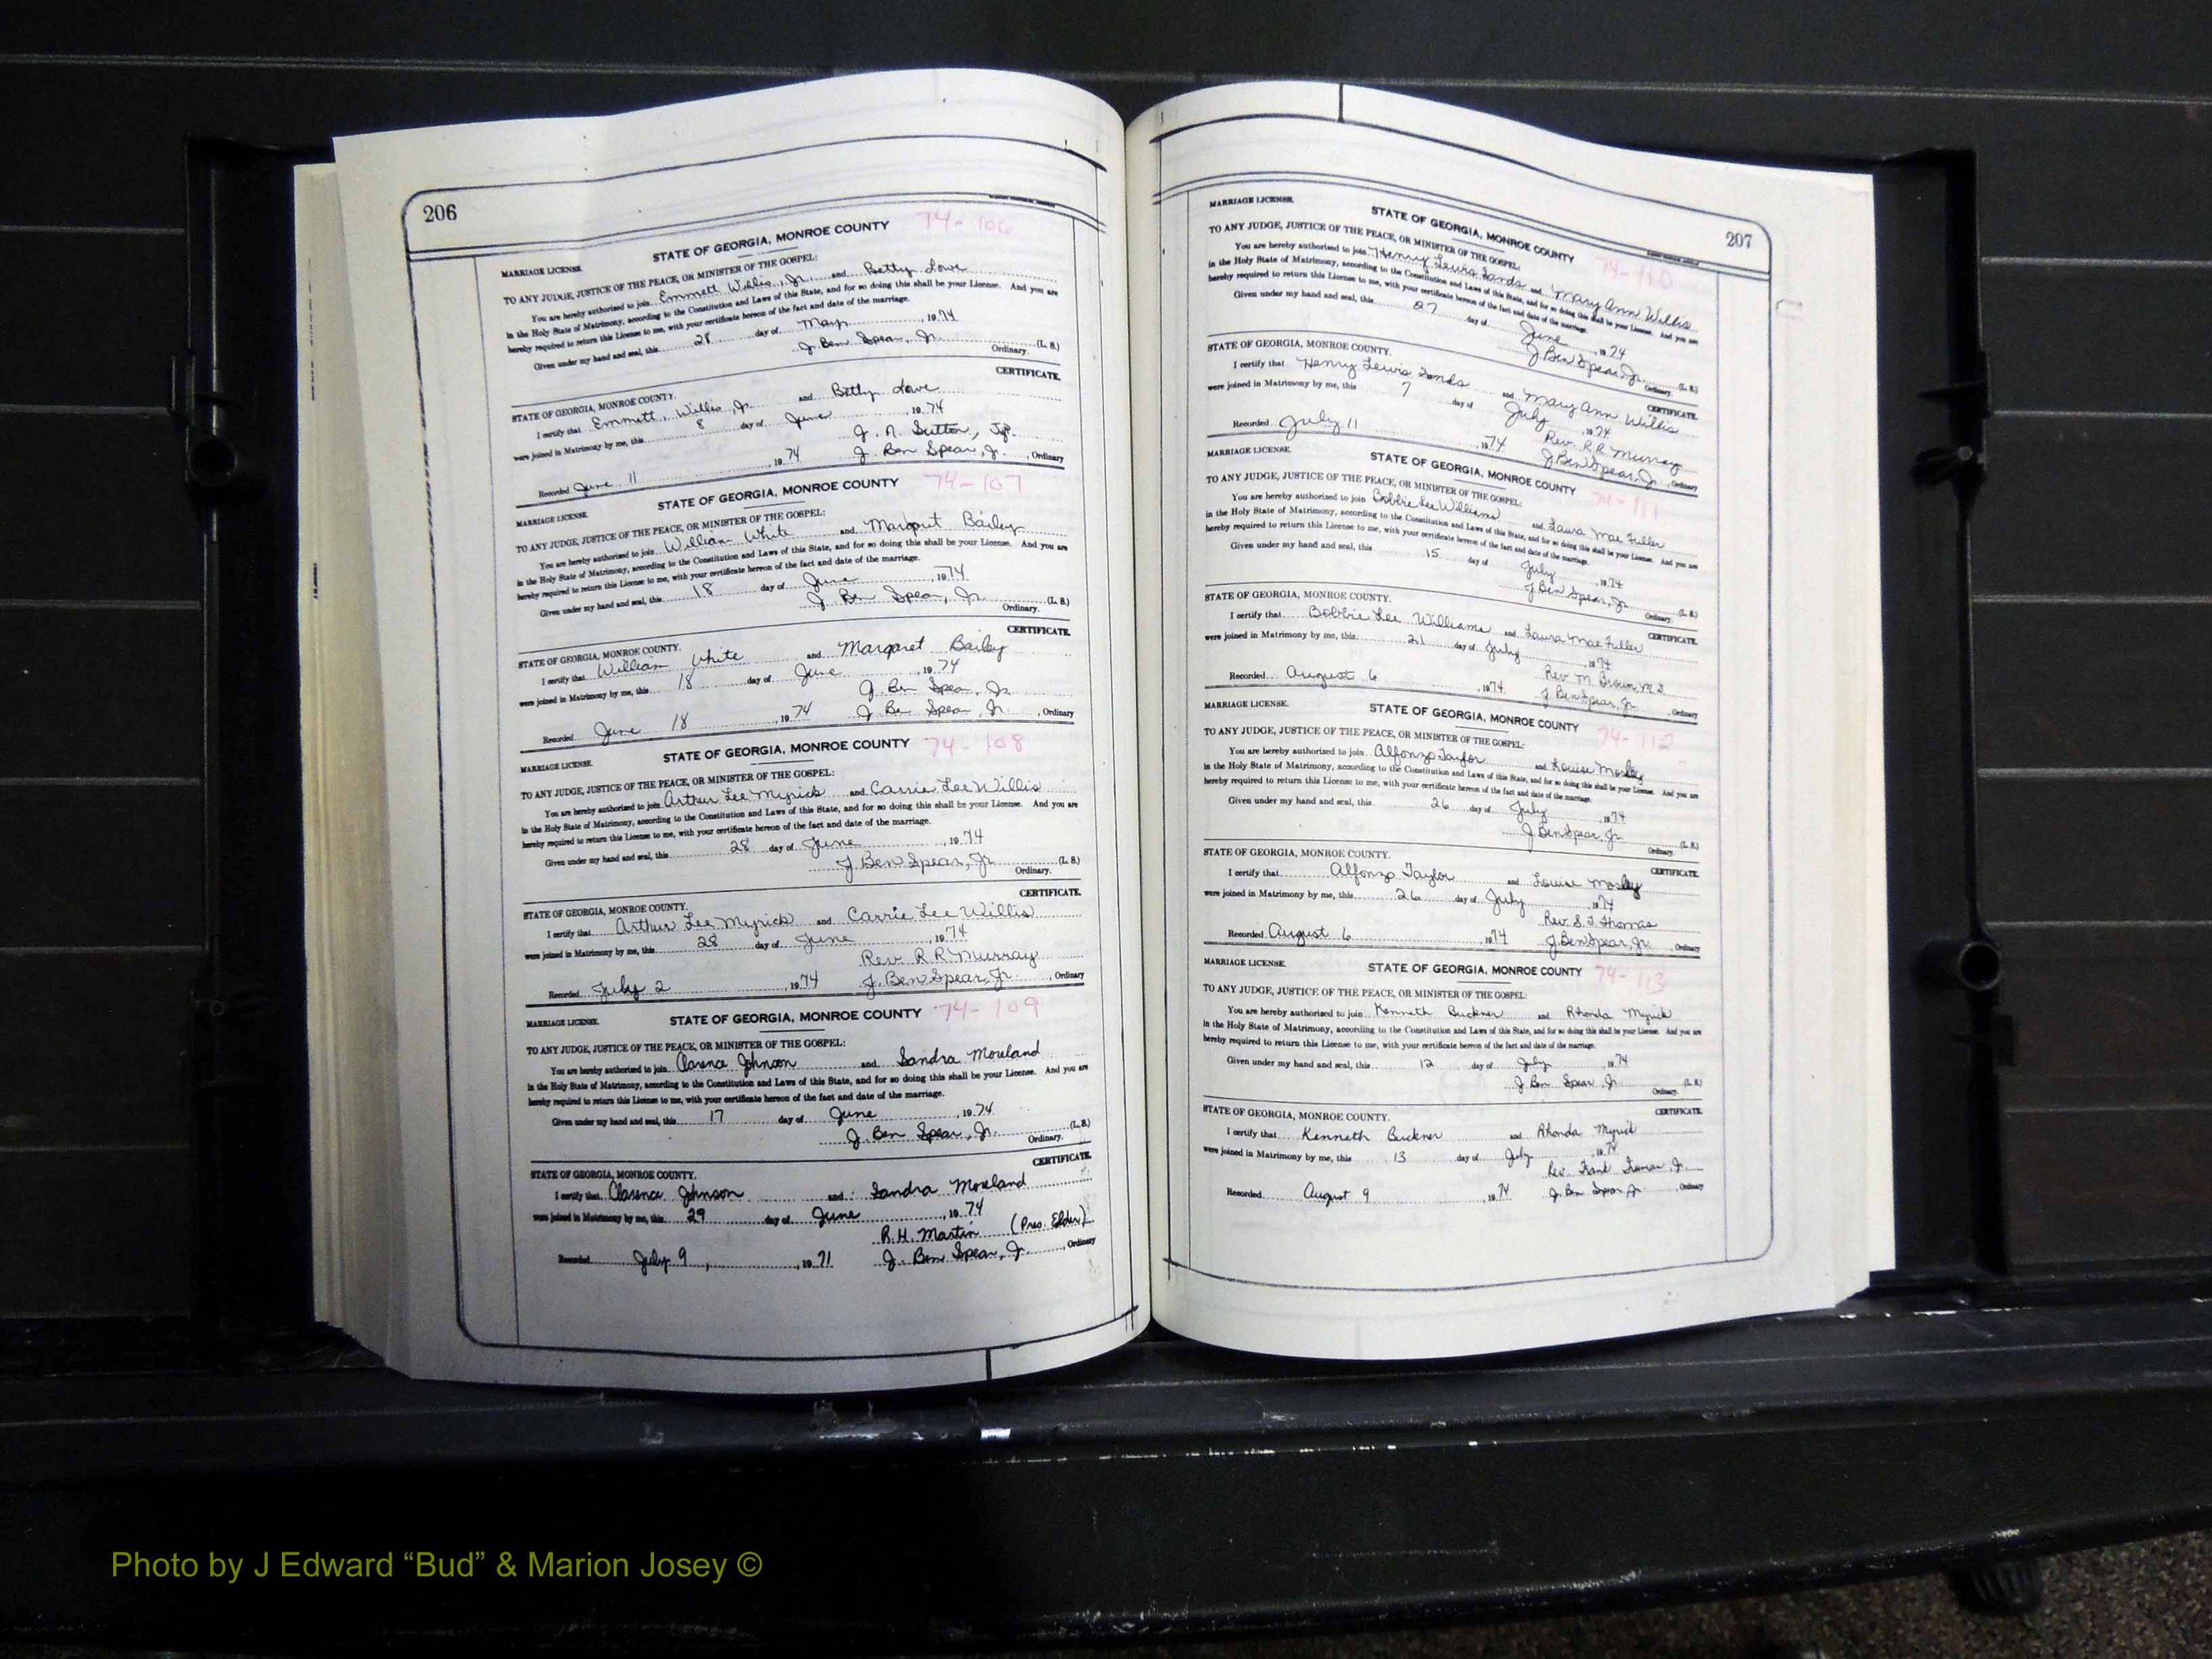 206
STATE OF GEORGIA, MONROE COUNTY 74-106
MARRIAGE LICENSE.
TO ANY JUDGE, JUSTICE OF THE PEACE, OR MINISTER OF THE GOSPEL:
You are hereby authorized to join Emmett Willis, Jr. and Betty Lowe
in the Holy State of Matrimony, according to the Constitution and Laws of this State, and for so doing this shall be your License. And you are
hereby required to return this License to me, with your certificate hereon of the fact and date of the marriage.
Given under my hand and seal, this 28 day of May, 1974
J. Ben Spear, Jr. (L. S.)
Ordinary.
CERTIFICATE.
STATE OF GEORGIA, MONROE COUNTY.
I certify that Emmett, Willis, Jr. and Betty Lowe
were joined in Matrimony by me, this 8 day of June, 1974
J. N. Sutton, J.P.
Recorded June 11, 1974 J. Ben Spear, Jr., Ordinary
STATE OF GEORGIA, MONROE COUNTY 74-107
MARRIAGE LICENSE.
TO ANY JUDGE, JUSTICE OF THE PEACE, OR MINISTER OF THE GOSPEL:
You are hereby authorized to join William White and Margaret Bailey
in the Holy State of Matrimony, according to the Constitution and Laws of this State, and for so doing this shall be your License. And you are
hereby required to return this License to me, with your certificate hereon of the fact and date of the marriage.
Given under my hand and seal, this 18 day of June, 1974
J. Ben Spear, Jr. (L. S.)
Ordinary.
CERTIFICATE.
STATE OF GEORGIA, MONROE COUNTY.
I certify that William White and Margaret Bailey
were joined in Matrimony by me, this 18 day of June, 1974
J. Ben Spear, Jr.
Recorded June 18, 1974 J. Ben Spear, Jr., Ordinary
STATE OF GEORGIA, MONROE COUNTY 74-108
MARRIAGE LICENSE.
TO ANY JUDGE, JUSTICE OF THE PEACE, OR MINISTER OF THE GOSPEL:
You are hereby authorized to join Arthur Lee Myrick and Carrie Lee Willis
in the Holy State of Matrimony, according to the Constitution and Laws of this State, and for so doing this shall be your License. And you are
hereby required to return this License to me, with your certificate hereon of the fact and date of the marriage.
Given under my hand and seal, this 28 day of June, 1974
J. Ben Spear, Jr (L. S.)
Ordinary.
CERTIFICATE.
STATE OF GEORGIA, MONROE COUNTY.
I certify that Arthur Lee Myrick and Carrie Lee Willis
were joined in Matrimony by me, this 28 day of June, 1974
Rev. R R Murray
Recorded July 2, 1974 J. Ben Spear, Jr., Ordinary
STATE OF GEORGIA, MONROE COUNTY 74-109
MARRIAGE LICENSE.
TO ANY JUDGE, JUSTICE OF THE PEACE, OR MINISTER OF THE GOSPEL:
You are hereby authorized to join Clarence Johnson and Sandra Moreland
in the Holy State of Matrimony, according to the Constitution and Laws of this State, and for so doing this shall be your License. And you are
hereby required to return this License to me, with your certificate hereon of the fact and date of the marriage.
Given under my hand and seal, this 17 day of June, 1974
J. Ben Spear, Jr. (L. S.)
Ordinary.
CERTIFICATE.
STATE OF GEORGIA, MONROE COUNTY.
I certify that Clarence Johnson and Sandra Moreland
were joined in Matrimony by me, this 29 day of June, 1974
R.H. Martin (Pres. Elder)
Recorded July 9, 1971 J. Ben Spear, Jr., Ordinary
207
MARRIAGE LICENSE.
STATE OF GEORGIA, MONROE COUNTY 74-110
TO ANY JUDGE, JUSTICE OF THE PEACE, OR MINISTER OF THE GOSPEL:
You are hereby authorized to join Henry Lewis Sands and Mary Ann Willis
in the Holy State of Matrimony, according to the Constitution and Laws of this State, and for so doing this shall be your License. And you are
hereby required to return this License to me, with your certificate hereon of the fact and date of the marriage.
Given under my hand and seal, this 27 day of June, 1974
J Ben Spear, Jr. (L. S.)
Ordinary.
STATE OF GEORGIA, MONROE COUNTY.
CERTIFICATE.
I certify that Henry Lewis Sands and Mary Ann Willis
were joined in Matrimony by me, this 7 day of July, 1974
Rev. R R Murray
Recorded July 11, 1974 J Ben Spear, Jr., Ordinary
MARRIAGE LICENSE.
STATE OF GEORGIA, MONROE COUNTY 74-111
TO ANY JUDGE, JUSTICE OF THE PEACE, OR MINISTER OF THE GOSPEL:
You are hereby authorized to join Bobbie Lee Williams and Laura Mae Fuller
in the Holy State of Matrimony, according to the Constitution and Laws of this State, and for so doing this shall be your License. And you are
hereby required to return this License to me, with your certificate hereon of the fact and date of the marriage.
Given under my hand and seal, this 15 day of July, 1974
J Ben Spear, Jr. (L. S.)
Ordinary.
STATE OF GEORGIA, MONROE COUNTY.
CERTIFICATE.
I certify that Bobbie Lee Williams and Laura Mae Fuller
were joined in Matrimony by me, this 21 day of July, 1974
Rev. M. Brown
Recorded August 6, 1974 J Ben Spear, Jr., Ordinary
MARRIAGE LICENSE.
STATE OF GEORGIA, MONROE COUNTY 74-112
TO ANY JUDGE, JUSTICE OF THE PEACE, OR MINISTER OF THE GOSPEL:
You are hereby authorized to join Alfonzo Taylor and Louise Mosley
in the Holy State of Matrimony, according to the Constitution and Laws of this State, and for so doing this shall be your License. And you are
hereby required to return this License to me, with your certificate hereon of the fact and date of the marriage.
Given under my hand and seal, this 26 day of July, 1974
J Ben Spear, Jr. (L. S.)
Ordinary.
STATE OF GEORGIA, MONROE COUNTY.
CERTIFICATE.
I certify that Alfonzo Taylor and Louise Mosley
were joined in Matrimony by me, this 26 day of July, 1974
Rev. S. J. Thomas
Recorded August 6, 1974 J. Ben Spear, Jr., Ordinary
MARRIAGE LICENSE.
STATE OF GEORGIA, MONROE COUNTY 74-113
TO ANY JUDGE, JUSTICE OF THE PEACE, OR MINISTER OF THE GOSPEL:
You are hereby authorized to join Kenneth Buckner and Rhonda Myrick
in the Holy State of Matrimony, according to the Constitution and Laws of this State, and for so doing this shall be your License. And you are
hereby required to return this License to me, with your certificate hereon of the fact and date of the marriage.
Given under my hand and seal, this 12 day of July, 1974
J. Ben Spear, Jr. (L. S.)
Ordinary.
STATE OF GEORGIA, MONROE COUNTY.
CERTIFICATE.
I certify that Kenneth Buckner and Rhonda Myrick
were joined in Matrimony by me, this 13 day of July, 1974
Rev. Frank Freeman, Jr.
Recorded August 9, 1974 J. Ben Spear Jr., Ordinary
Photo by J Edward “Bud” & Marion Josey ©